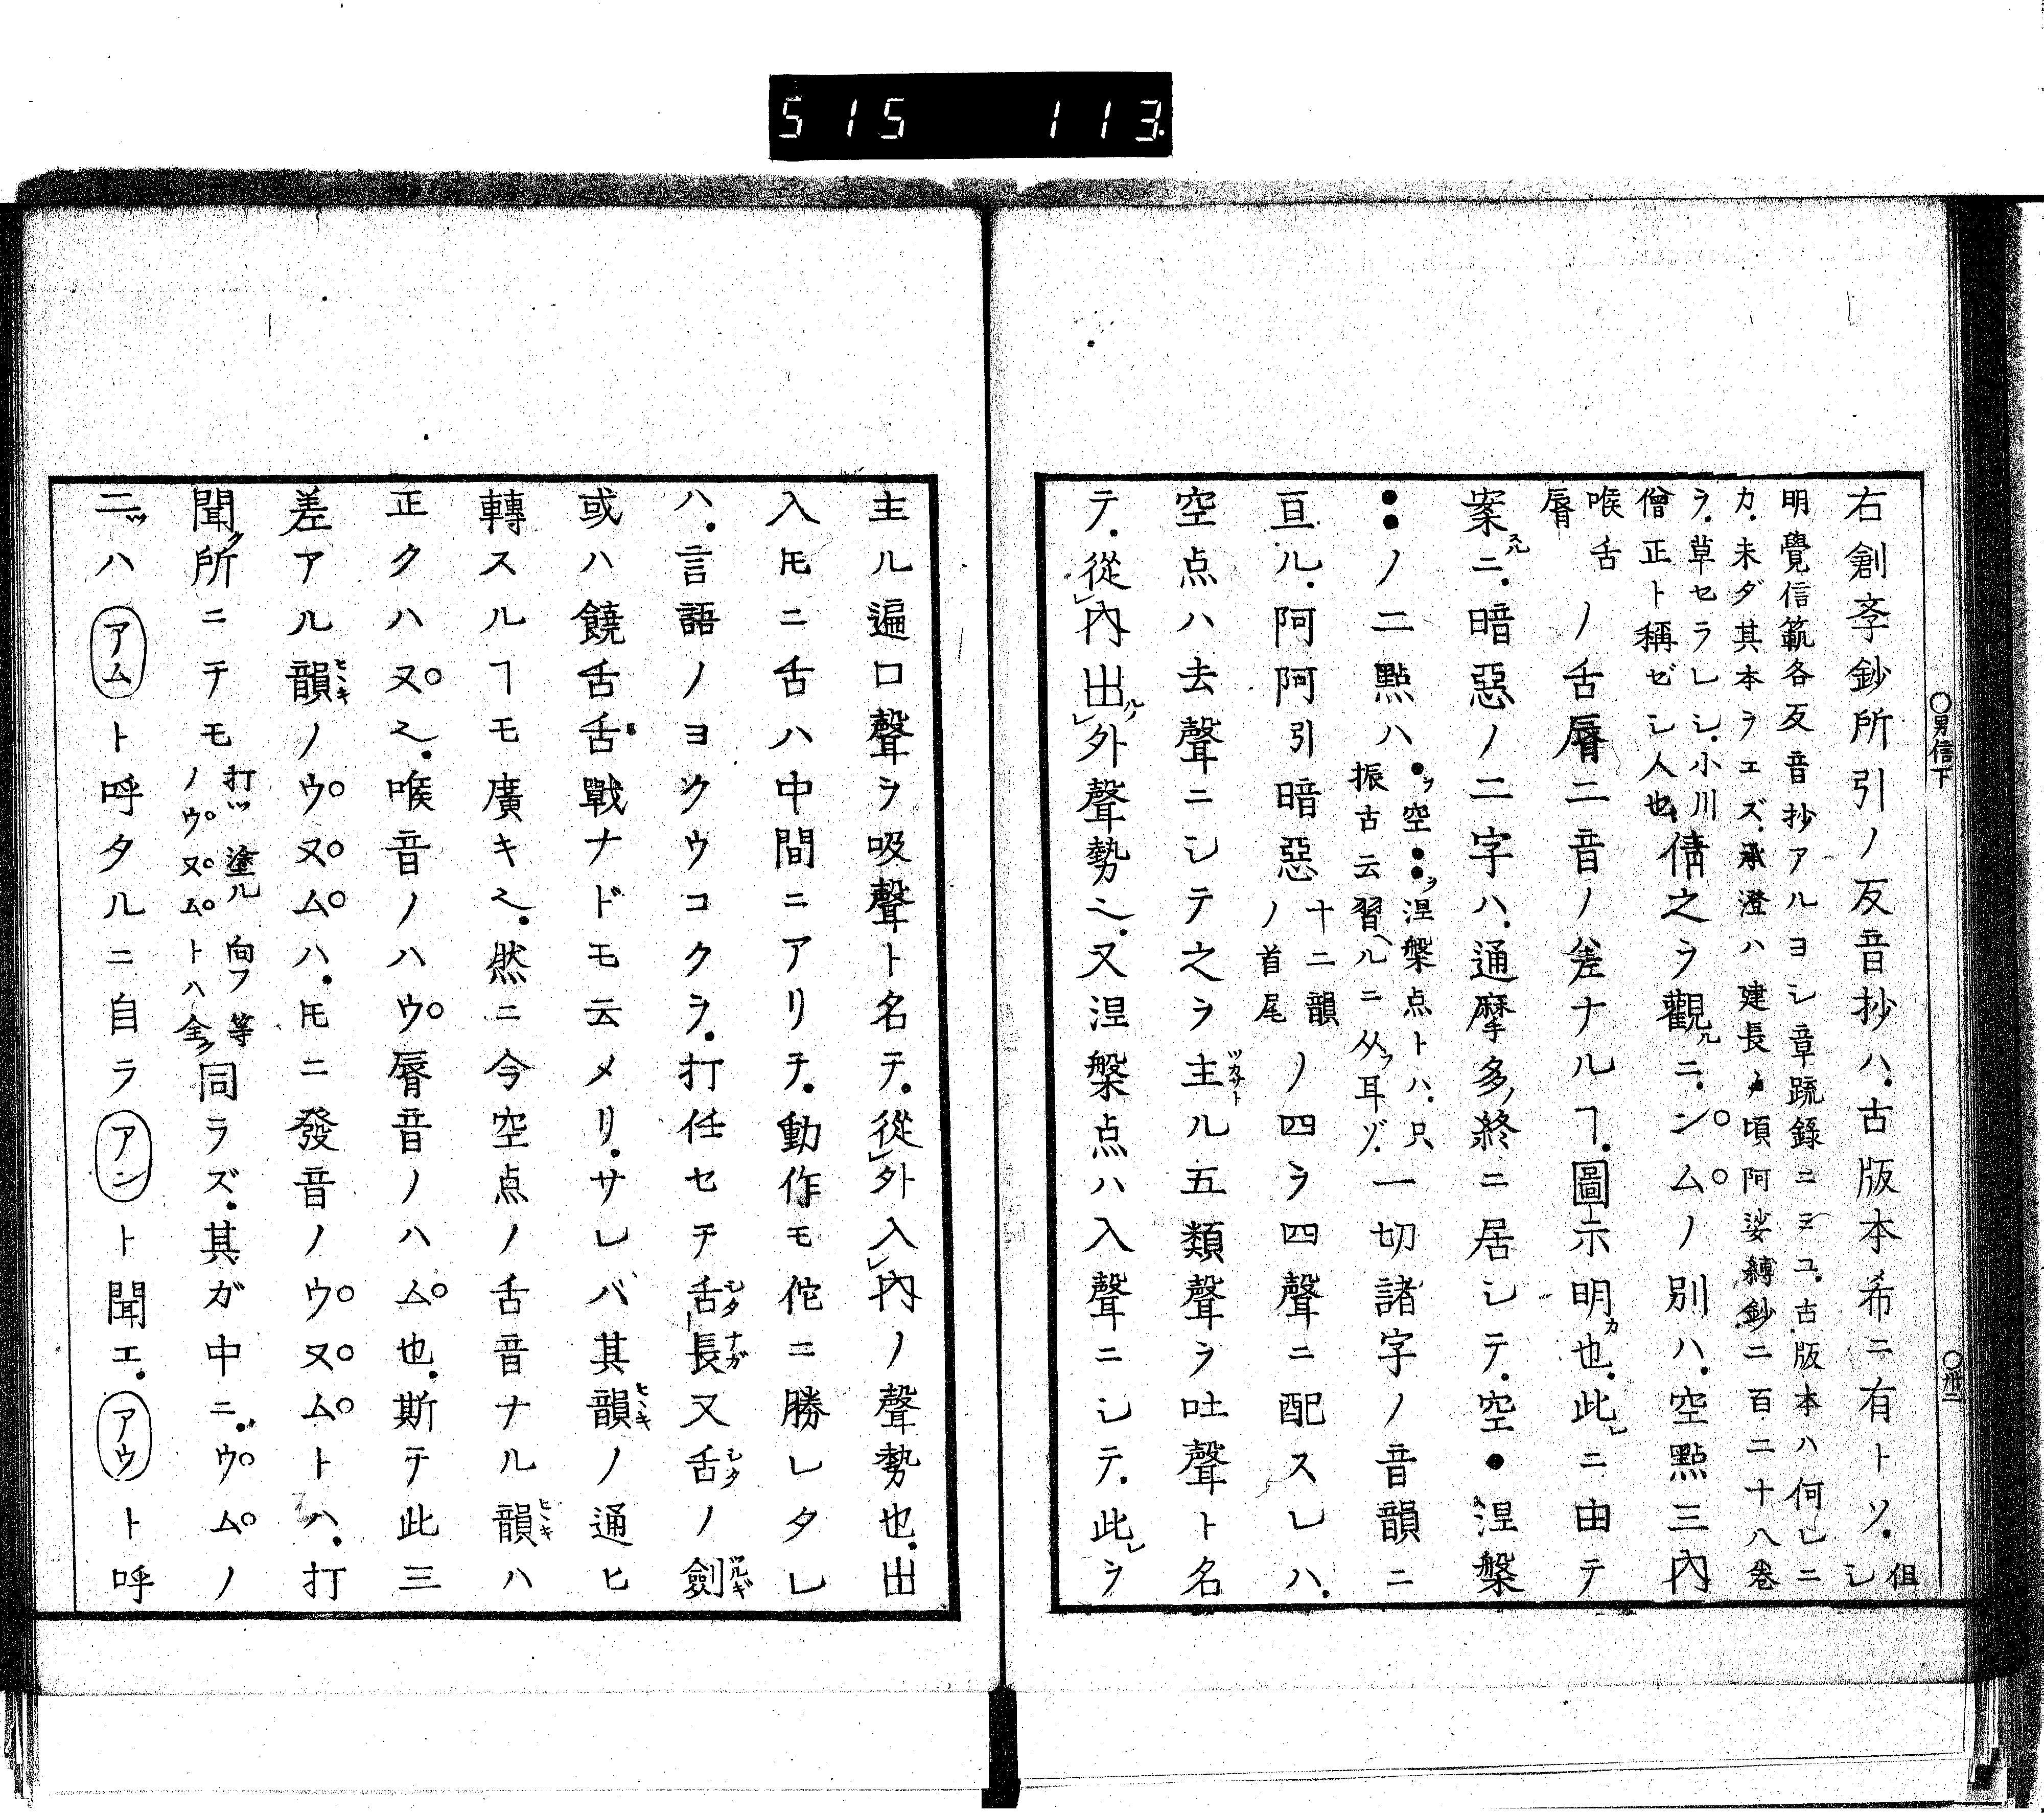 515 113
○男信下 ○卅二
右創斈鈔所引ノ反音抄ハ.古版本希ニ有トソ.但シ
明覺信範各反音抄アルヨシ章疏錄ニミユ.古版本ハ何レニ
カ.未ダ其本ヲエズ.承澄ハ建長ノ頃阿娑縛鈔二百二十八卷
ヲ.草セラレシ.小川
僧正ト稱ゼシ人也
倩之ヲ觀ルニ.ンムノ別ハ.空點三內
喉舌
脣
ノ舌脣二音ノ差ナルヿ.圖示明カ也.此レニ由テ
案スルニ.暗惡ノ二字ハ.通摩多ノ終ニ居シテ.空●涅槃
●●ノ二點ハ
●ヲ空●●ヲ涅槃点トハ.只
振古云習ヘルニ从フ耳ゾ.
一切諸字ノ音韻ニ
亘ル.阿阿引暗惡
十二韻
ノ首尾
ノ四ヲ四聲ニ配スレハ.
空点ハ去聲ニシテ之ヲ主ツカサトル五類聲ヲ吐聲ト名
テ.從レ內出ルノレ外聲勢也.又涅槃点ハ入聲ニシテ.此レヲ
主ル遍口聲ヲ吸聲ト名テ.從レ外入レ內ノ聲勢也.出
入𪜈ニ舌ハ中間ニアリテ.動作モ佗ニ勝レタレ
ハ.言語ノヨクウコクヲ.打任セテ舌シタ長ナガ又舌シタノ劍ツルギ
或ハ饒舌舌戰ナドモ云メリ.サレバ其韻ヒヽキノ通ヒ
轉スルヿモ廣キ也.然ニ今空点ノ舌音ナル韻ヒヽキハ
正クハヌ也.喉音ノハウ脣音ノハム也.斯テ此三
差アル韻ヒヽキノウヌムハ.𪜈ニ發音ノウヌムトハ.打
聞ク所ニテモ
打ツ塗ル向フ等
ノウヌムトハ全ク
同ラズ.其ガ中ニ.ウムノ
二ツハアムト呼タルニ自ラアント聞エ.アウト呼